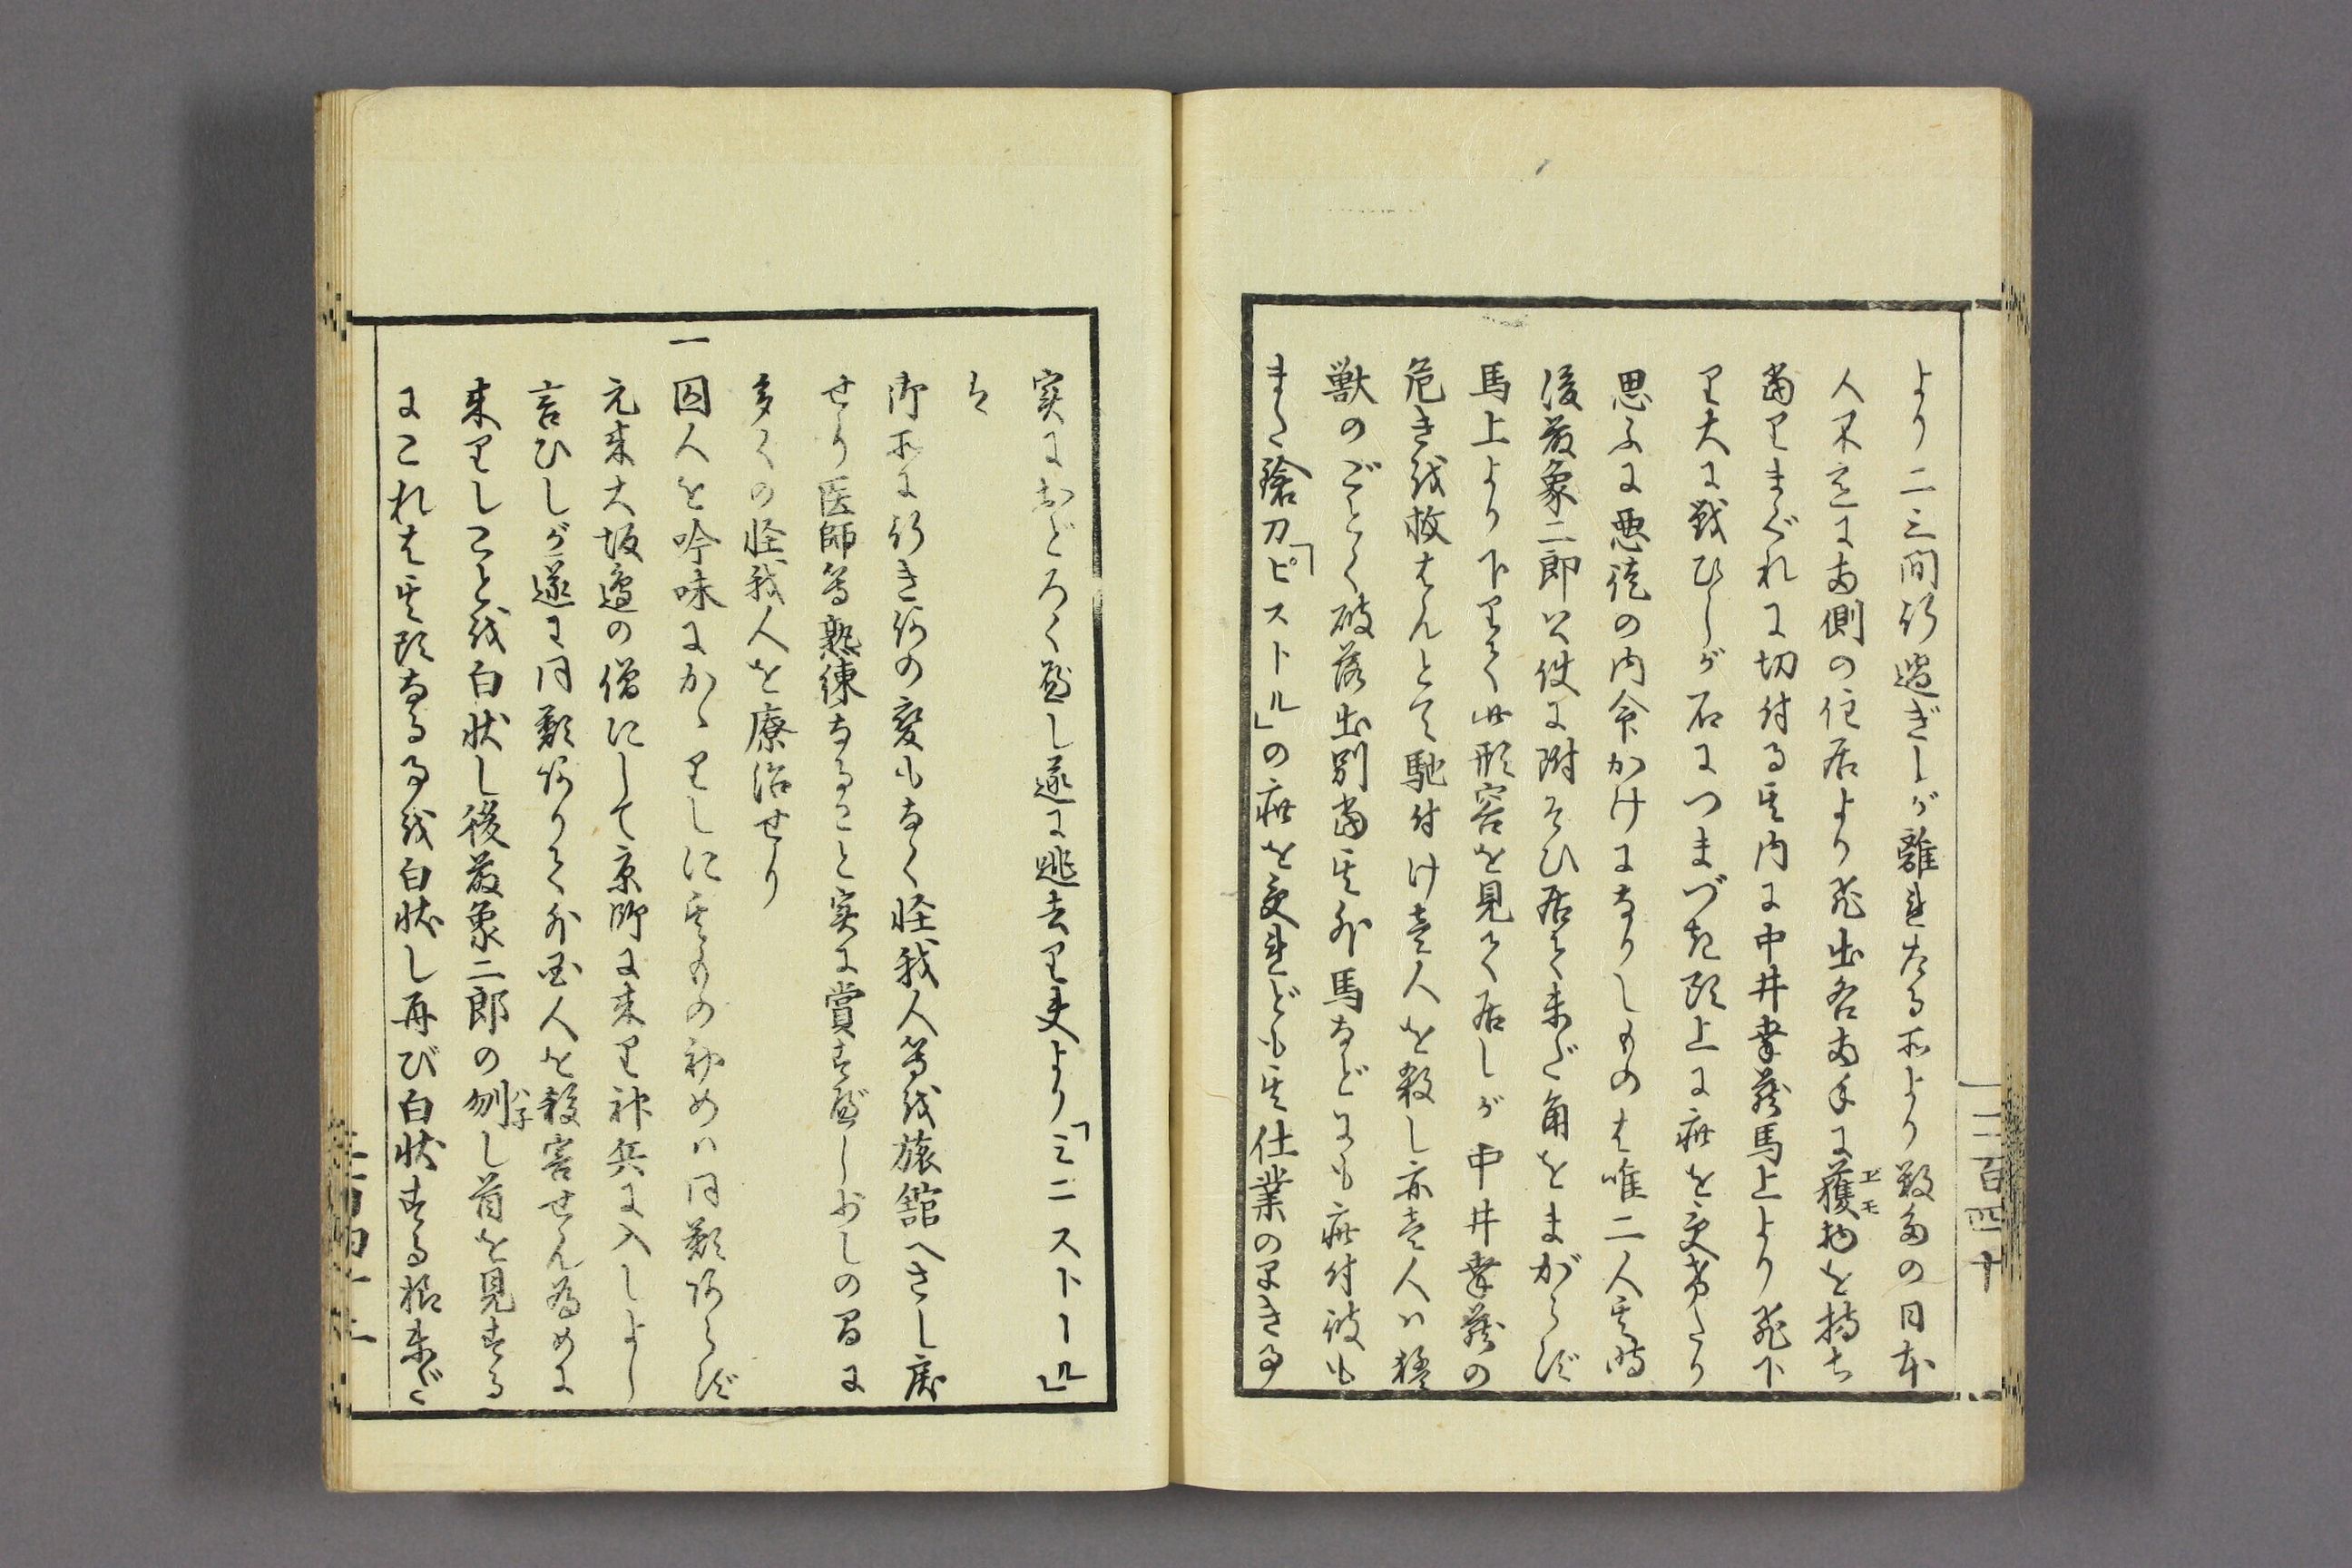 より二三間行過ぎしが離れたる所より数多の日本
人不意に両側の住居より飛出各両手に獲物を持ち
エモ
当りまぐれに切付る其内に中井幸蔵馬上より飛下
り大に戦ひしが石につまづき頭上に疵を受たり
思ふに悪徒の内命かけになりしものは唯二人其時
後藤象二郎公使に附そひ居て未だ角をまがらず
馬上より下りて此形容を見て居しが中井幸蔵の
危き救はんとて馳付け壱人を殺し亦壱人ハ
獣のごとく破落出別当其外馬などにも疵付彼も
また鎗刀「ピストル」の疵を受れども其仕業のすき事
三百四十
実におどろく べし遂に逃去り夫より「ミニストール」
は
御所に行き何の変もなく怪我人等を旅館へさし戻
せり医師等熟練なること実に賞すべし少しの間に
多くの怪我人を療治せり
一
囚人を吟味にかゝりしに其ものゝ初めハ同類あらず
元来大坂邉の僧にして京師に来り神兵に入しよし
言ひしが遂に同類ありて外国人を殺害せん為めに
来りしことを白状し後藤象二郎の刎し首を見する
ハ子
にこれは其頭なる事を白状し再び白状する様未だ